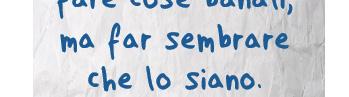 fare cose banali,
ma far sembrare
che lo siano.